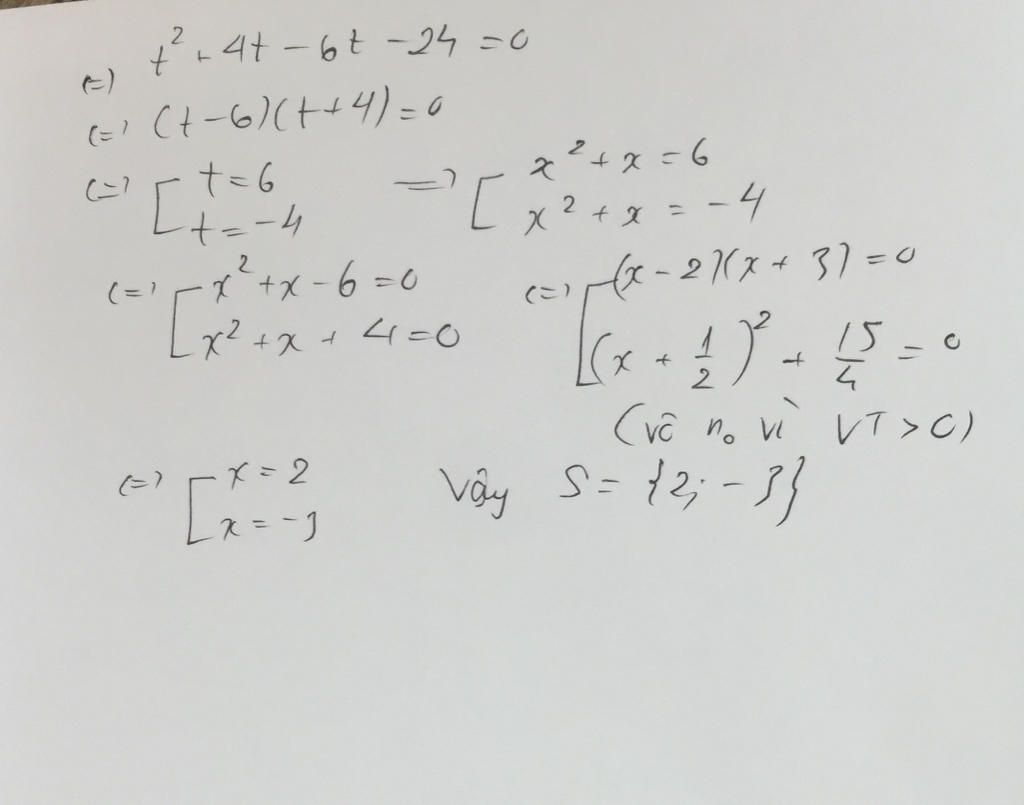 (=) t² + 4t - 6t - 24 = 0
(=) (t-6)(t+4) = 0
(=) [ t = 6 => [ x² + x = 6
t = -4 x² + x = -4
(=) [ x² + x - 6 = 0 (=) [ (x-2)(x+3) = 0
x² + x + 4 = 0 (x + 1/2)² + 15/4 = 0
(vô n₀ vì VT > 0)
(=) [ x = 2 Vậy S = {2; -3}
x = -3